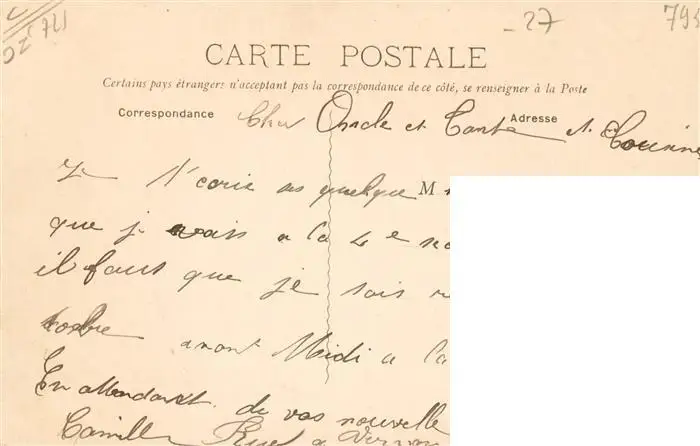 - 27
CARTE POSTALE
Certains pays étrangers n'acceptant pas la correspondance de ce côté, se renseigner à la Poste
Correspondance
Adresse
Cher Oncle et Tante et Cousine
Je t'ecris ses quelque
M
que je vais a la 4e
il faut que je sois
avant Midi a la
En attendant de vos nouvelle
Camille